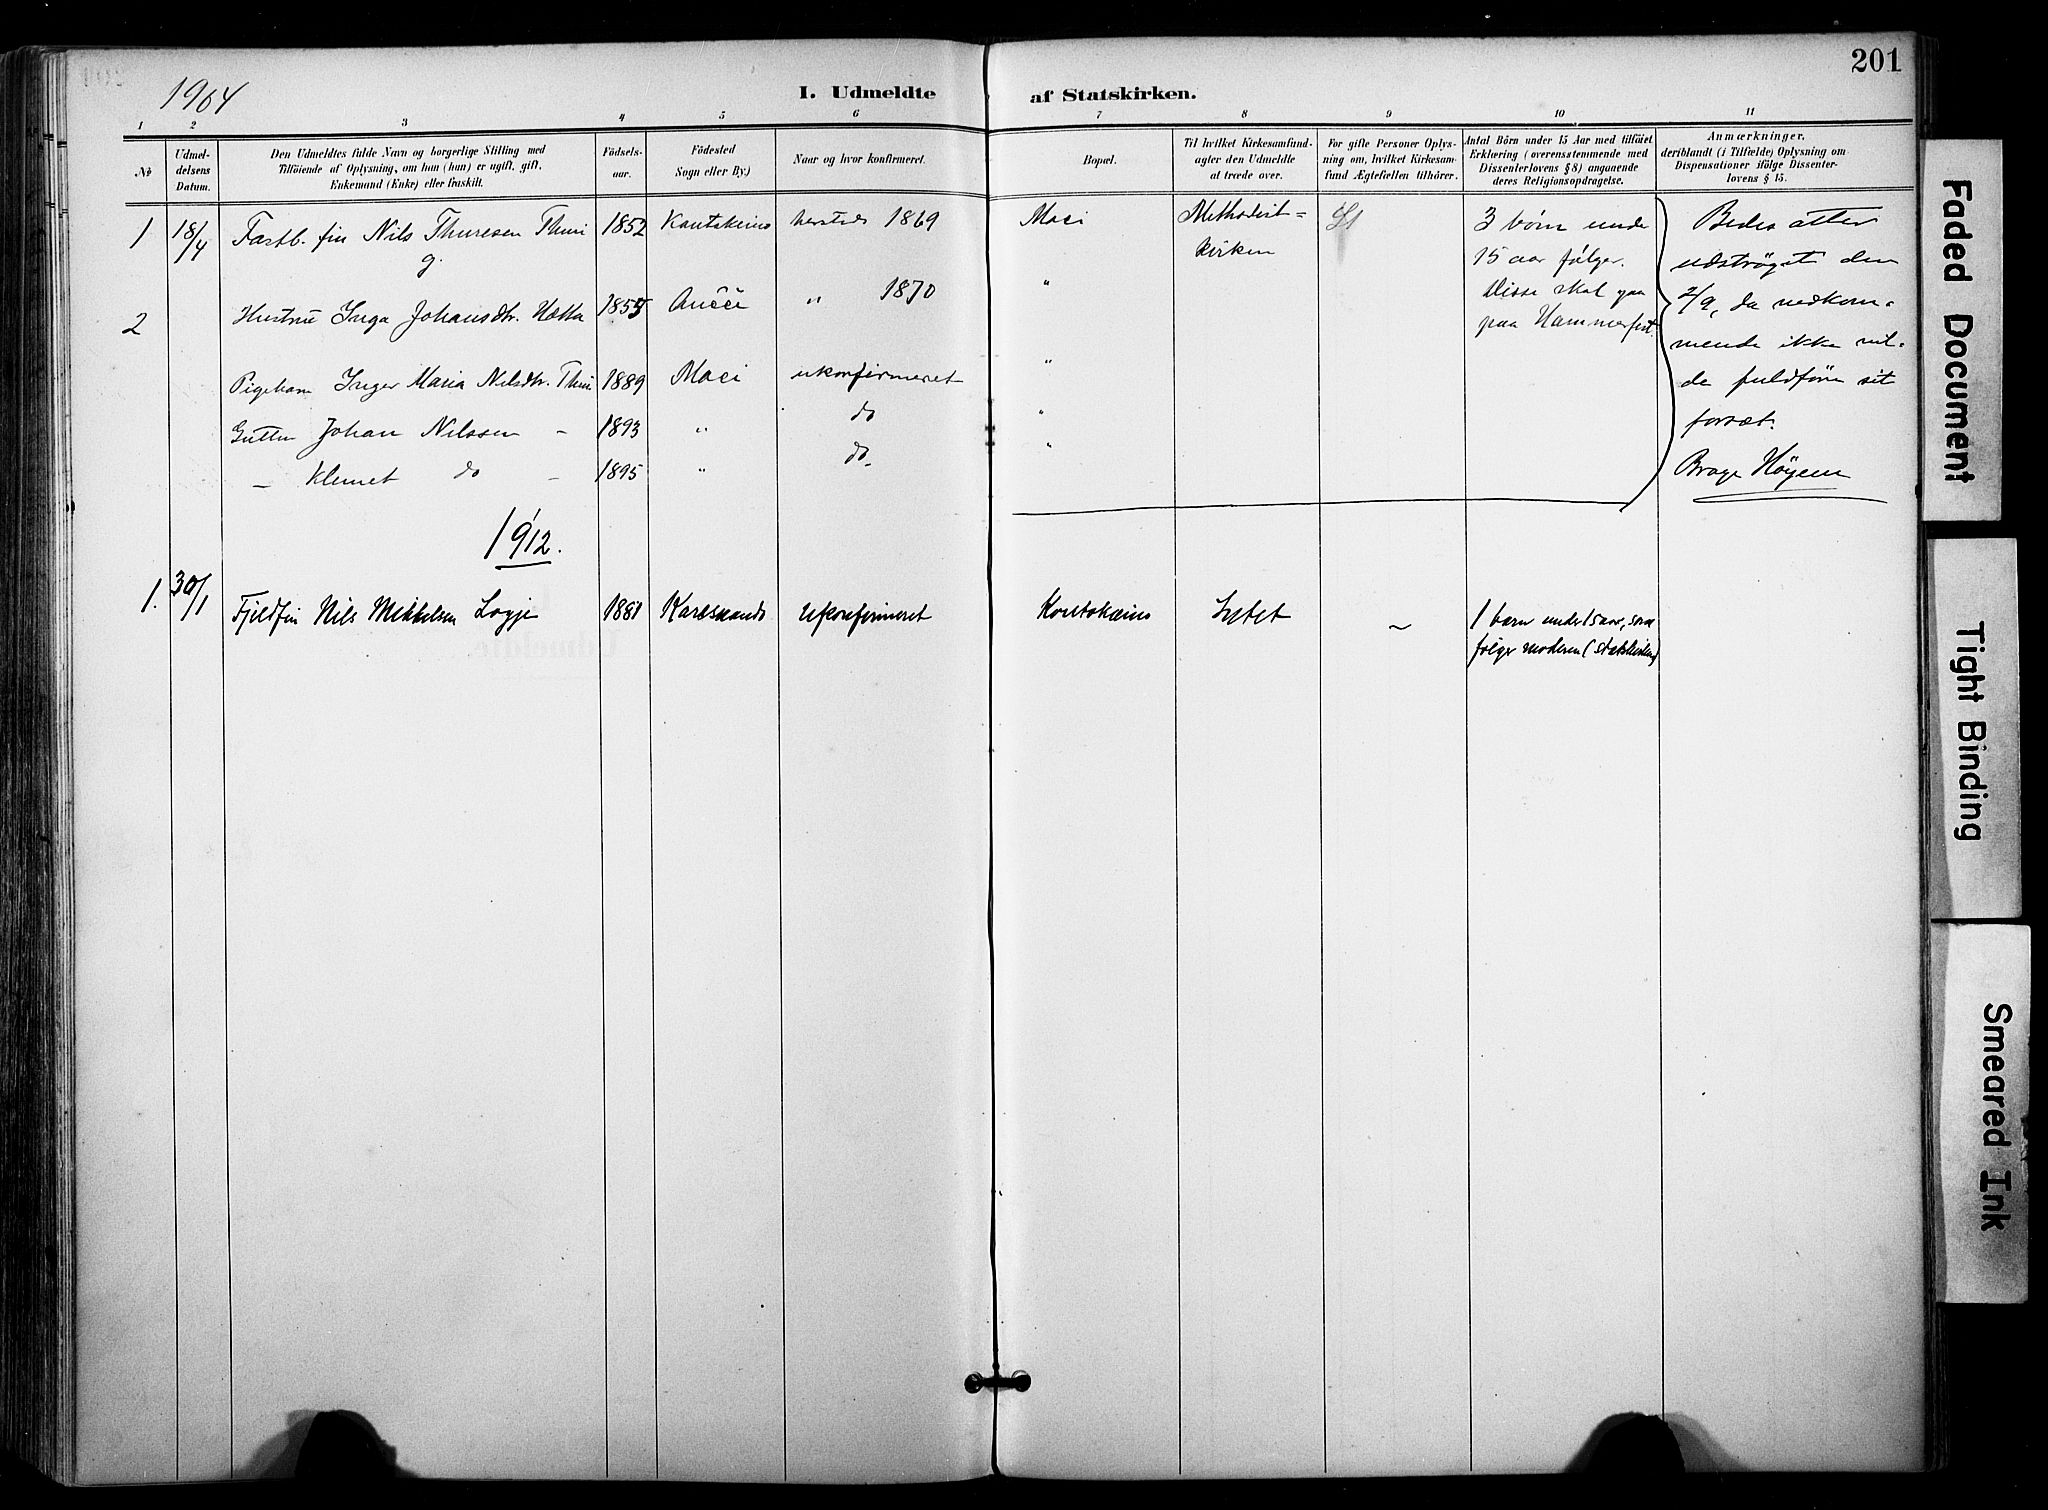 201
1904
I. Udmeldte af Statskirken.
1 2 3 4 5 6 7 8 9 10 11
No
Udmel-
delsens
Datum.
Den Udmeldtes fulde Navn og borgerlige Stilling med
Tilföiende af Oplysning, om han (hun) er ugift, gift,
Enkemand (Enke) eller fraskilt.
Födsels-
aar.
Födested
Sogn eller By.)
Naar og hvor konfirmeret.
Bopæl.
Til hvilket Kirkesamfund-
agter den Udmeldte
at træde over.
For gifte Personer Oplys-
ning om, hvilket Kirkesam-
fund Ægtefællen tilhörer.
Antal Börn under 15 Aar med tilföiet
Erklæring (overensstemmende med
Dissenterlovens § 8) angaaende
deres Religionsopdragelse.
Anmærkninger,
deriblandt (i Tilfælde) Oplysning om
Dispensationer ifölge Dissenter-
lovens § 15.
1 18/4 Fastb. fin Nils Thuresen Thuri 1852 Kautokeino hersteds 1869 Maci Methodist=
g. kirken
3 börn under
15 aar følger.
Disse skal gaa
paa Hammerfest.
Bedes atter
udströget den
2/9, da vedkom-
mende ikke vil-
de fuldføre sit
forsæt.
Brage Höyem
2 Hustru Inga Johansdtr. Hætta 1855 " 1870 "
Pigebarn Inger Maria Nilsdtr. Thuri 1889 Maci ukonfirmeret "
Gutten Johan Nilssen - 1893 " do "
- Klemet do - 1895 " do. "
1912.
1. 30/1 Fjeldfin Nils Mikkelsen 1881 Ukonfirmeret Koutokeino ~ 1 barn under 15 aar, som
følger moderen (statskirken)
Faded Document
Tight Binding
Smeared Ink